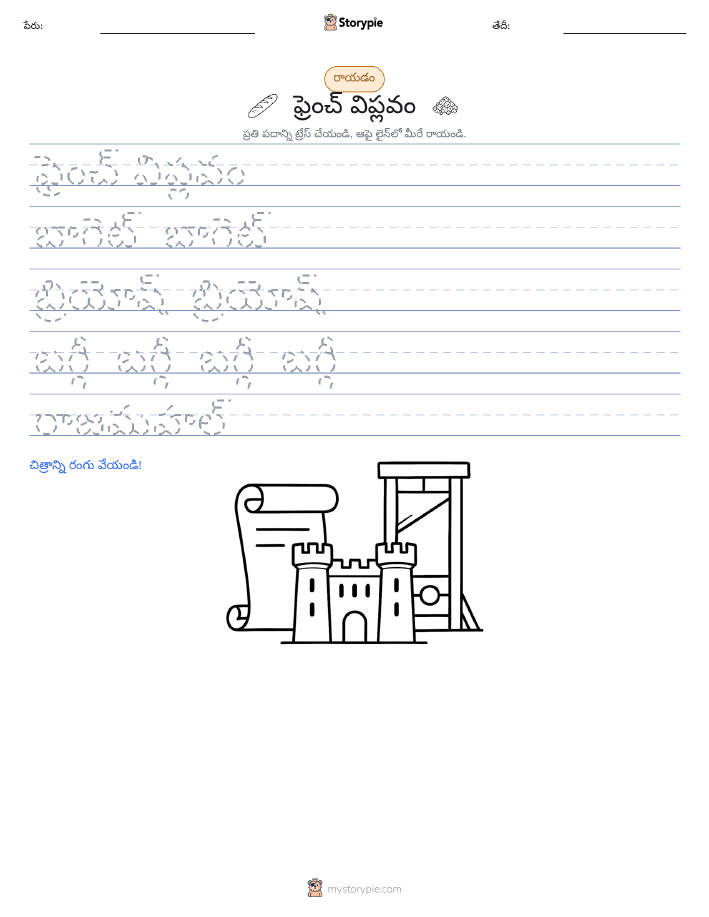 పేరు:
Storypie
తేదీ:
రాయడం
ఫ్రెంచ్ విప్లవం
ప్రతి పదాన్ని ట్రేస్ చేయండి, ఆపై లైన్‌లో మీరే రాయండి.
ఫ్రెంచ్ విప్లవం
బాగెట్ బాగెట్
బ్రియోష్ బ్రియోష్
బగ్గీ బగ్గీ బగ్గీ బగ్గీ
రాజమహల్
చిత్రాన్ని రంగు వేయండి!
mystorypie.com